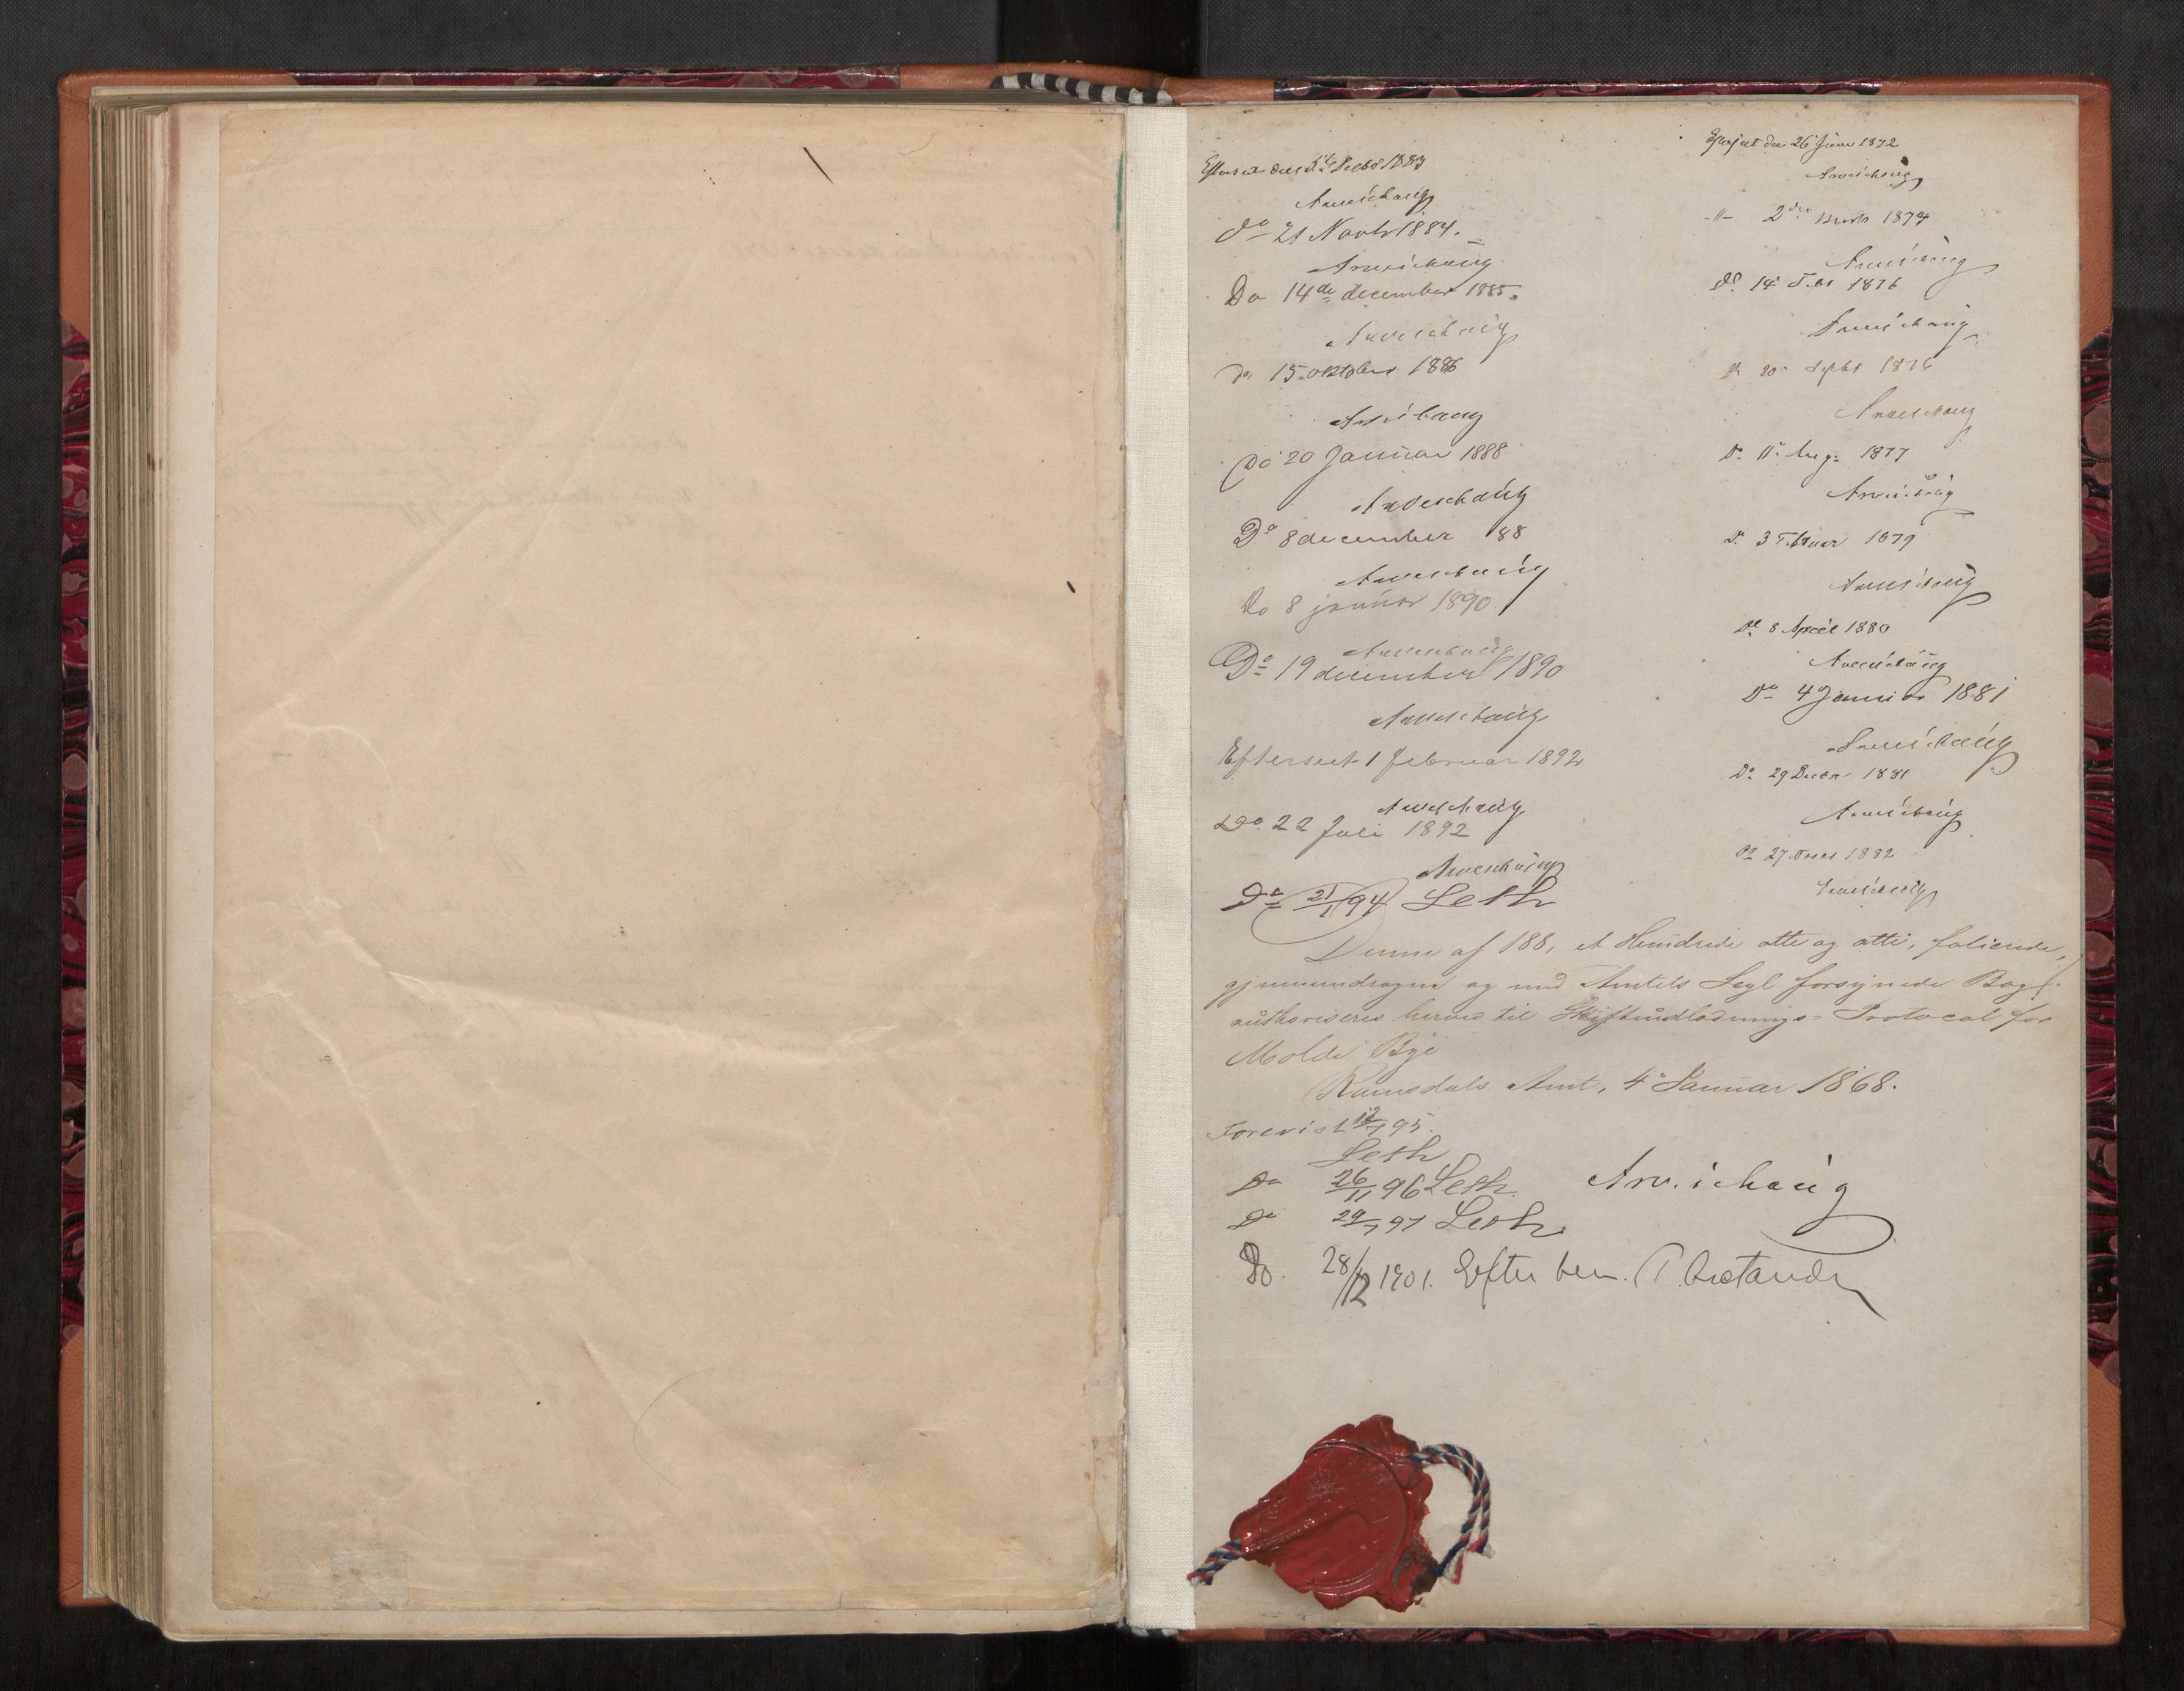 Efterseet den Decbr 1883
Arveschoug
Do 21 Novbr 1884.
Arveschoug
Do 14de december 1885.
Arveschoug
Do 15 oktober 1886
Arveschoug
Do 20 Januar 1888
Arveschoug
Do 8 december 88
Arveschoug
Do 8 januar 1890
Arveschoug
Do 19 december 1890
Arveschoug
Efterseet 1 februar 1892
Arveschoug
Do 22 Juli 1892
Arveschoug
Do 21/1 94 Leth
Efterseet den 26 Juni 1872
Arveschoug
-"- 2den 1874
Arveschoug
Do 14 Febr 1876
Arveschoug
Do 20 Septbr 1876
Arveschoug
Do 11 Aug: 1877
Arveschoug
Do 3 Februar 1879
Arveschoug
Do 8 April 1880
Arveschoug
Do 4 Januar 1881
Arveschoug
Do 29 Decbr 1881
Arveschoug
Do 27 1882
Arveschoug
Denne af 188, et Hundrede otte og otti, folierede,
gjennemdragne og med Amtets Segl forsynede Bog
authoriseres herved til Skifteudlodnings-Protocol for
Molde By
Romsdals Amt, 4 Januar 1868.
Arveschoug
Forevist 12/7 95.
Leth
Do 26/11 96 Leth
Do 29/7 97 Leth
Do. 28/12 1901. Efter bem.